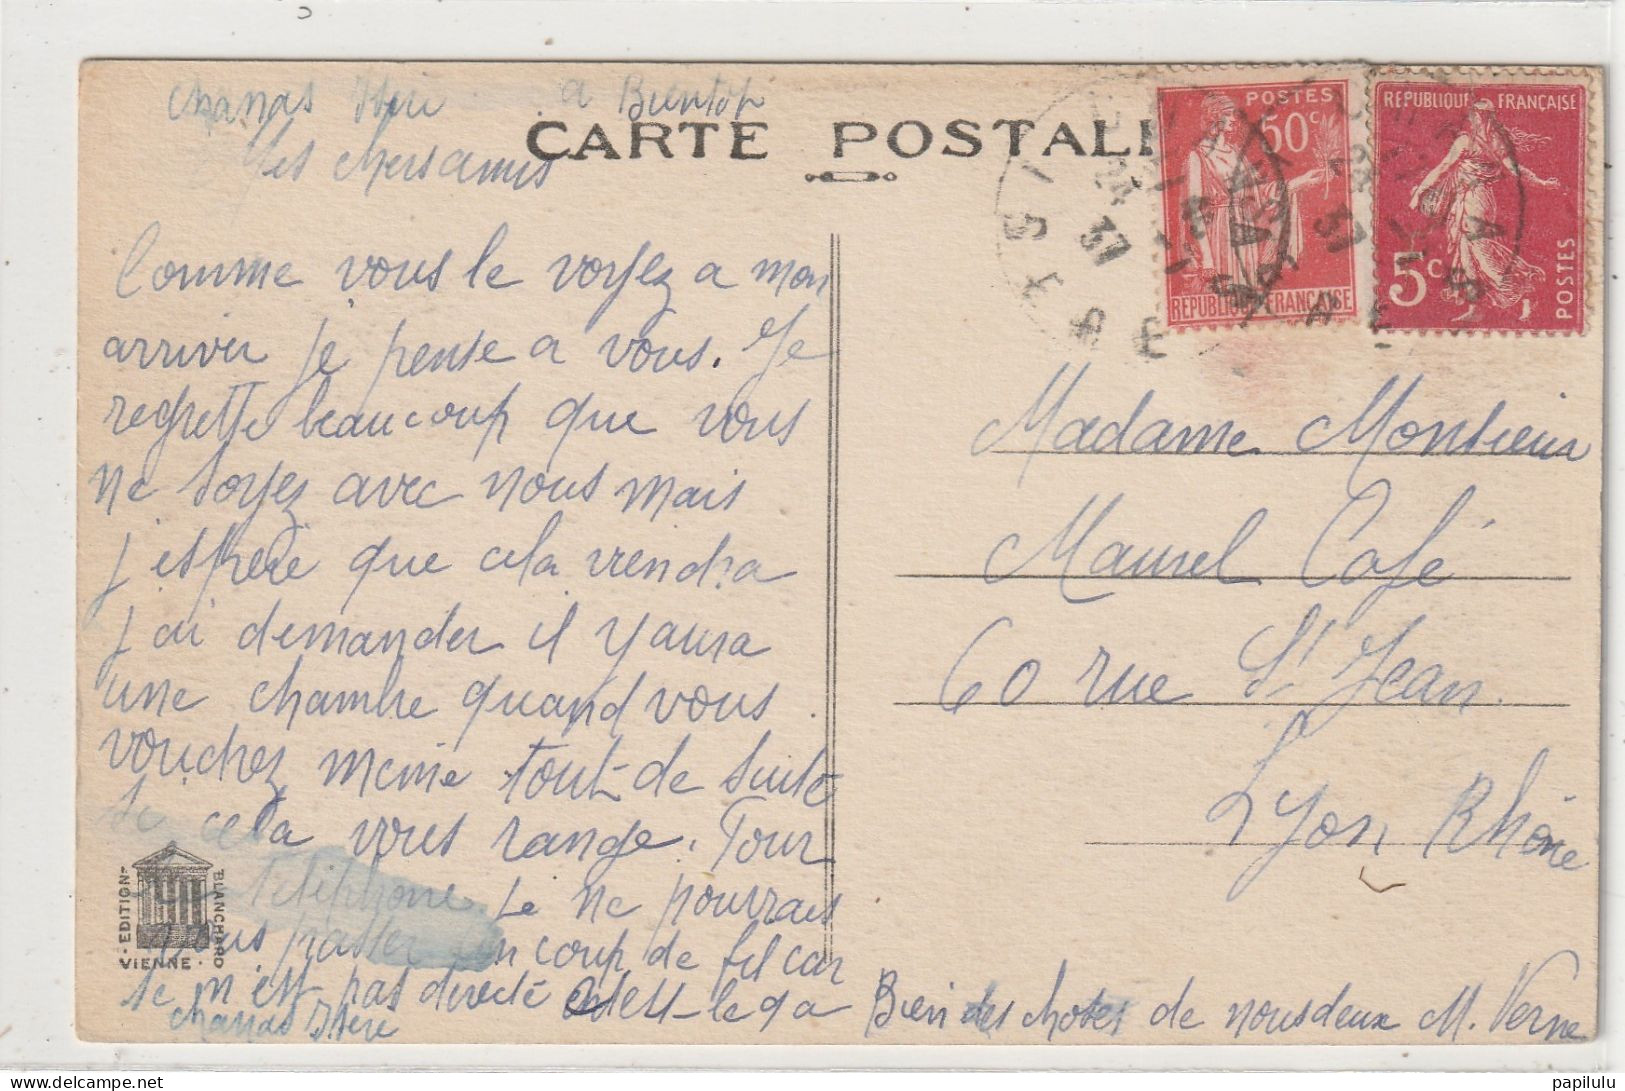 Chanas Isère a Bientot
CARTE POSTALE
Mes chers amis
Comme vous le voyez a mon
arriver je pense a vous. Je
regrette beaucoup que vous
ne soyez avec nous mais
j'espère que cela viendra
j'ai demander il y aura
une chambre quand vous
voudrez meme tout de suite
si cela vous range. Pour
le téléphone je ne pourrais
vous passer un coup de fil car
se n'est pas directe
Chanas Isère
Bien des choses de nous deux M. Verne
Madame Monsieur
Maurel Café
60 rue St Jean
Lyon Rhône
POSTES
50c
REPUBLIQUE FRANÇAISE
REPUBLIQUE FRANÇAISE
5c
POSTES
37
ISÈRE
EDITION
BLANCHARD
VIENNE
papilulu